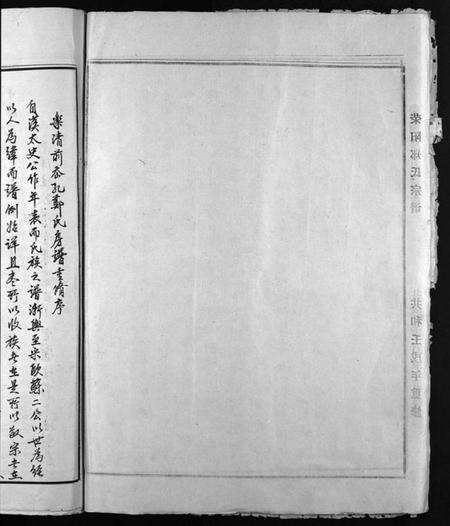 樂清前岙孔鄭氏房譜重脩序
自漢太史公作年表而氏族之譜漸興至宋歐蘇二公以世為經
以人為緯而譜例始詳且考所以收族者在是所以敬宗者在